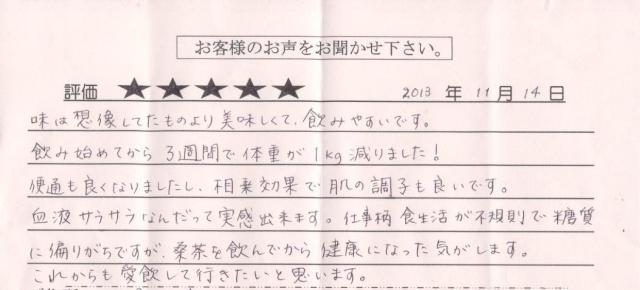 お客様のお声をお聞かせ下さい。
評価 ★★★★★ 2013 年 11 月 14 日
味は想像してたものより美味しくて、飲みやすいです。
飲み始めてから 3週間で体重が1kg減りました!
便通も良くなりましたし、相乗効果で肌の調子も良いです。
血液サラサラなんだって実感出来ます。仕事柄食生活が不規則で糖質
に偏りがちですが、桑茶を飲んでから健康になった気がします。
これからも愛飲して行きたいと思います。